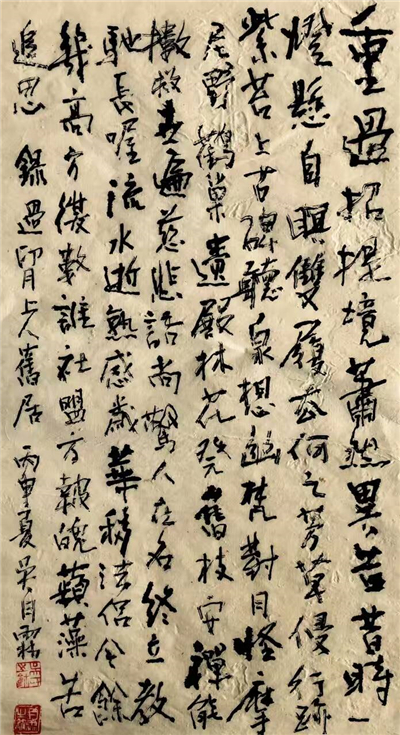 重過招提境蕭然異昔時一
燈懸自照雙履去何之芳草侵行跡
紫苔上古碑聽泉想遊梵對月怪摩
尼野鶴巢遺殿林花發舊枝安禪能
救遍慈悲語尚驚人在名終立教
馳長嗟流水逝熟感歲華移法侶今餘
幾高方復數誰社盟方愧蘋藻苦
追思 錄過上人舊居 丙申夏吳自霖